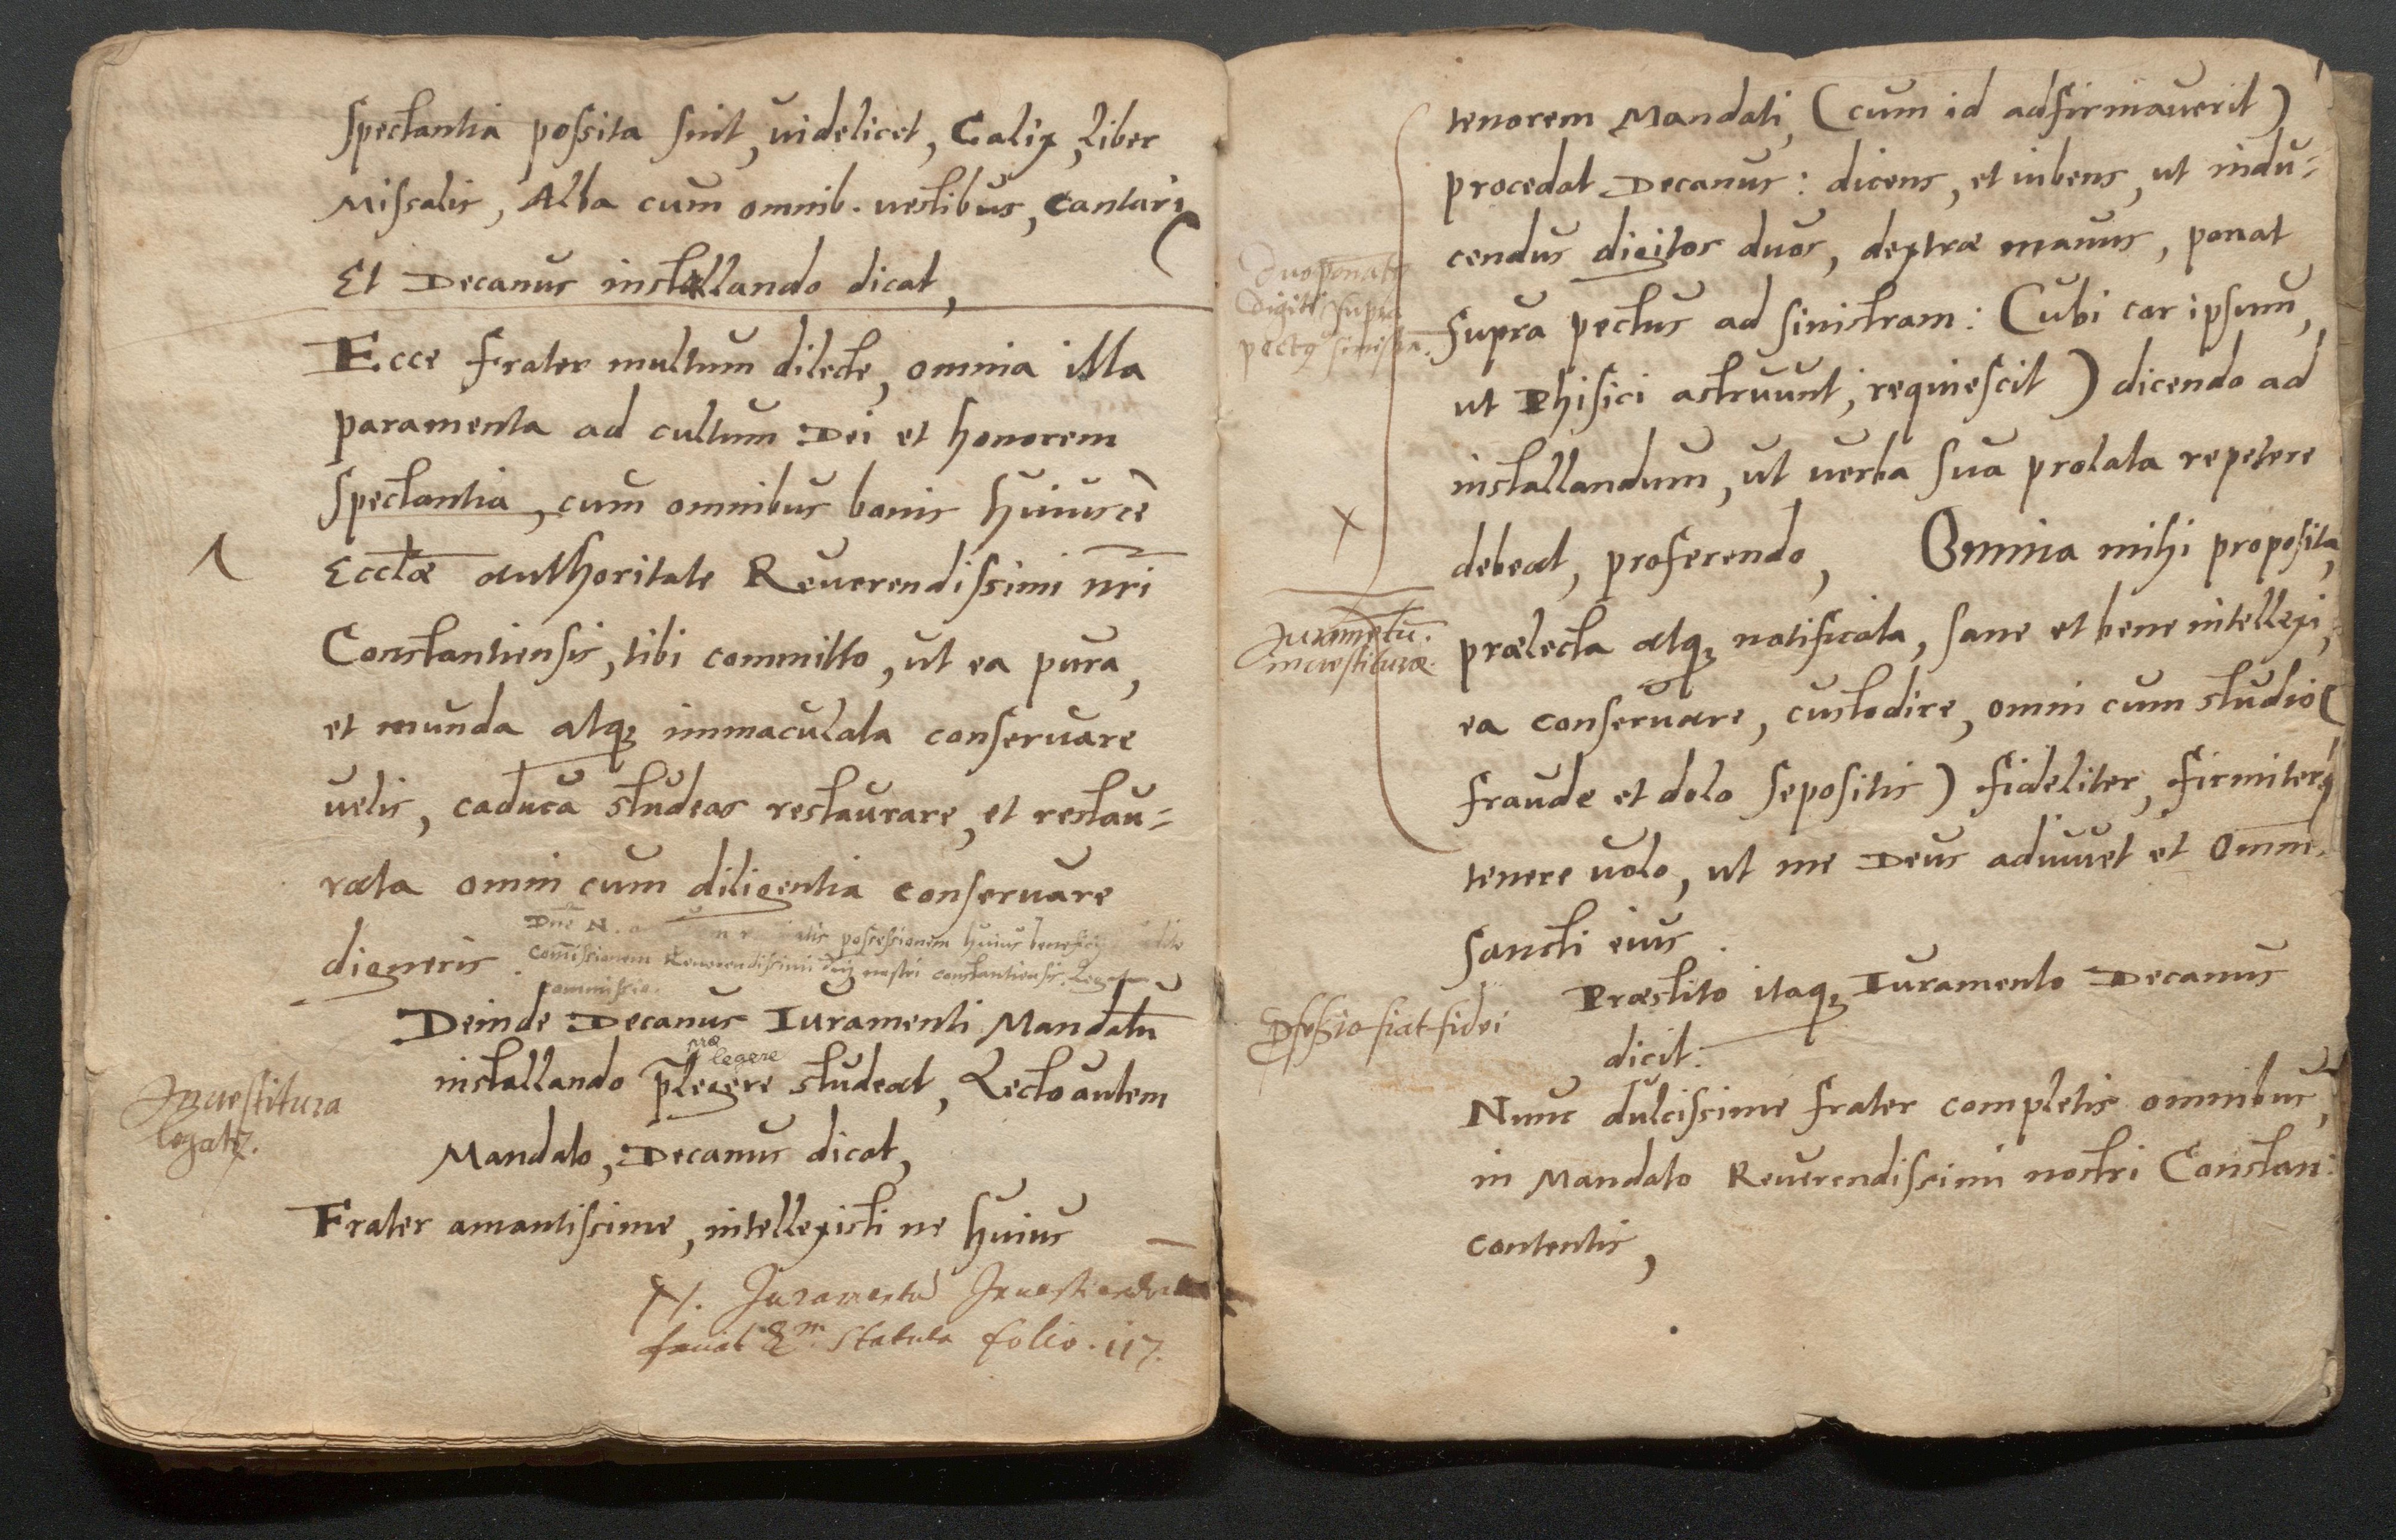 spectantia possita sint, uidelicet, Calix, Liber
Missalis, Alba cum omnib. uestibus, Cantari
Et Decanus installando dicat,
Ecce frater multum dilecte, omnia illa
paramenta ad cultum Dei et honorem
spectantia, cum omnibus bonis huiusce
Eccłæ authoritate Reuerendissimi nr̄i
Constantiensis, tibi committo, ut ea pura,
et munda atq; immaculata conseruare
uelis, caduca studeas restaurare, et restau=
rata omni cum diligentia conseruare
digneris.
Dn̄e N. possessionem huius beneficij
Com̄issionem Reuerendissimi Dn̄j nostri constantiensis.
commissio.
Deinde Decanus Iuramenti Mandatū
præ legere
installando p̄legere studeat, Lecto autem
Inuestitura
legat.
Mandato, Decanus dicat,
Frater amantissime, intellexisti ne huius
N. Juramentū
faciat statuta folio. 117.
tenorem Mandati, (cum id adfirmauerit)
procedat Decanus: dicens, et iubens, ut indu=
cendus digitos duos, dextræ manus, ponat
duo ponat
digiti supra
pect9 sinistra.
supra pectus ad sinistram: (ubi cor ipsum,
ut Phisici astruunt, requiescit) dicendo ad
installandum, ut uerba sua prolata repetere
debeat, proferendo, Omnia mihi proposita,
Juramētū.
inuestituræ.
prælecta atq; notificata, sane et bene intellexi,
ea conseruare, custodire, omni cum studio (
fraude et dolo sepositis) fideliter, firmiterq;
tenere uolo, ut me Deus adiuuet et Omn̄.
sancti eius.
Pfessio fiat fidei
Præstito itaq; Iuramento Decanus
dicit.
Nunc dulcissime frater completis omnibus,
in Mandato Reuerendissimi nostri Constan:
contentis,